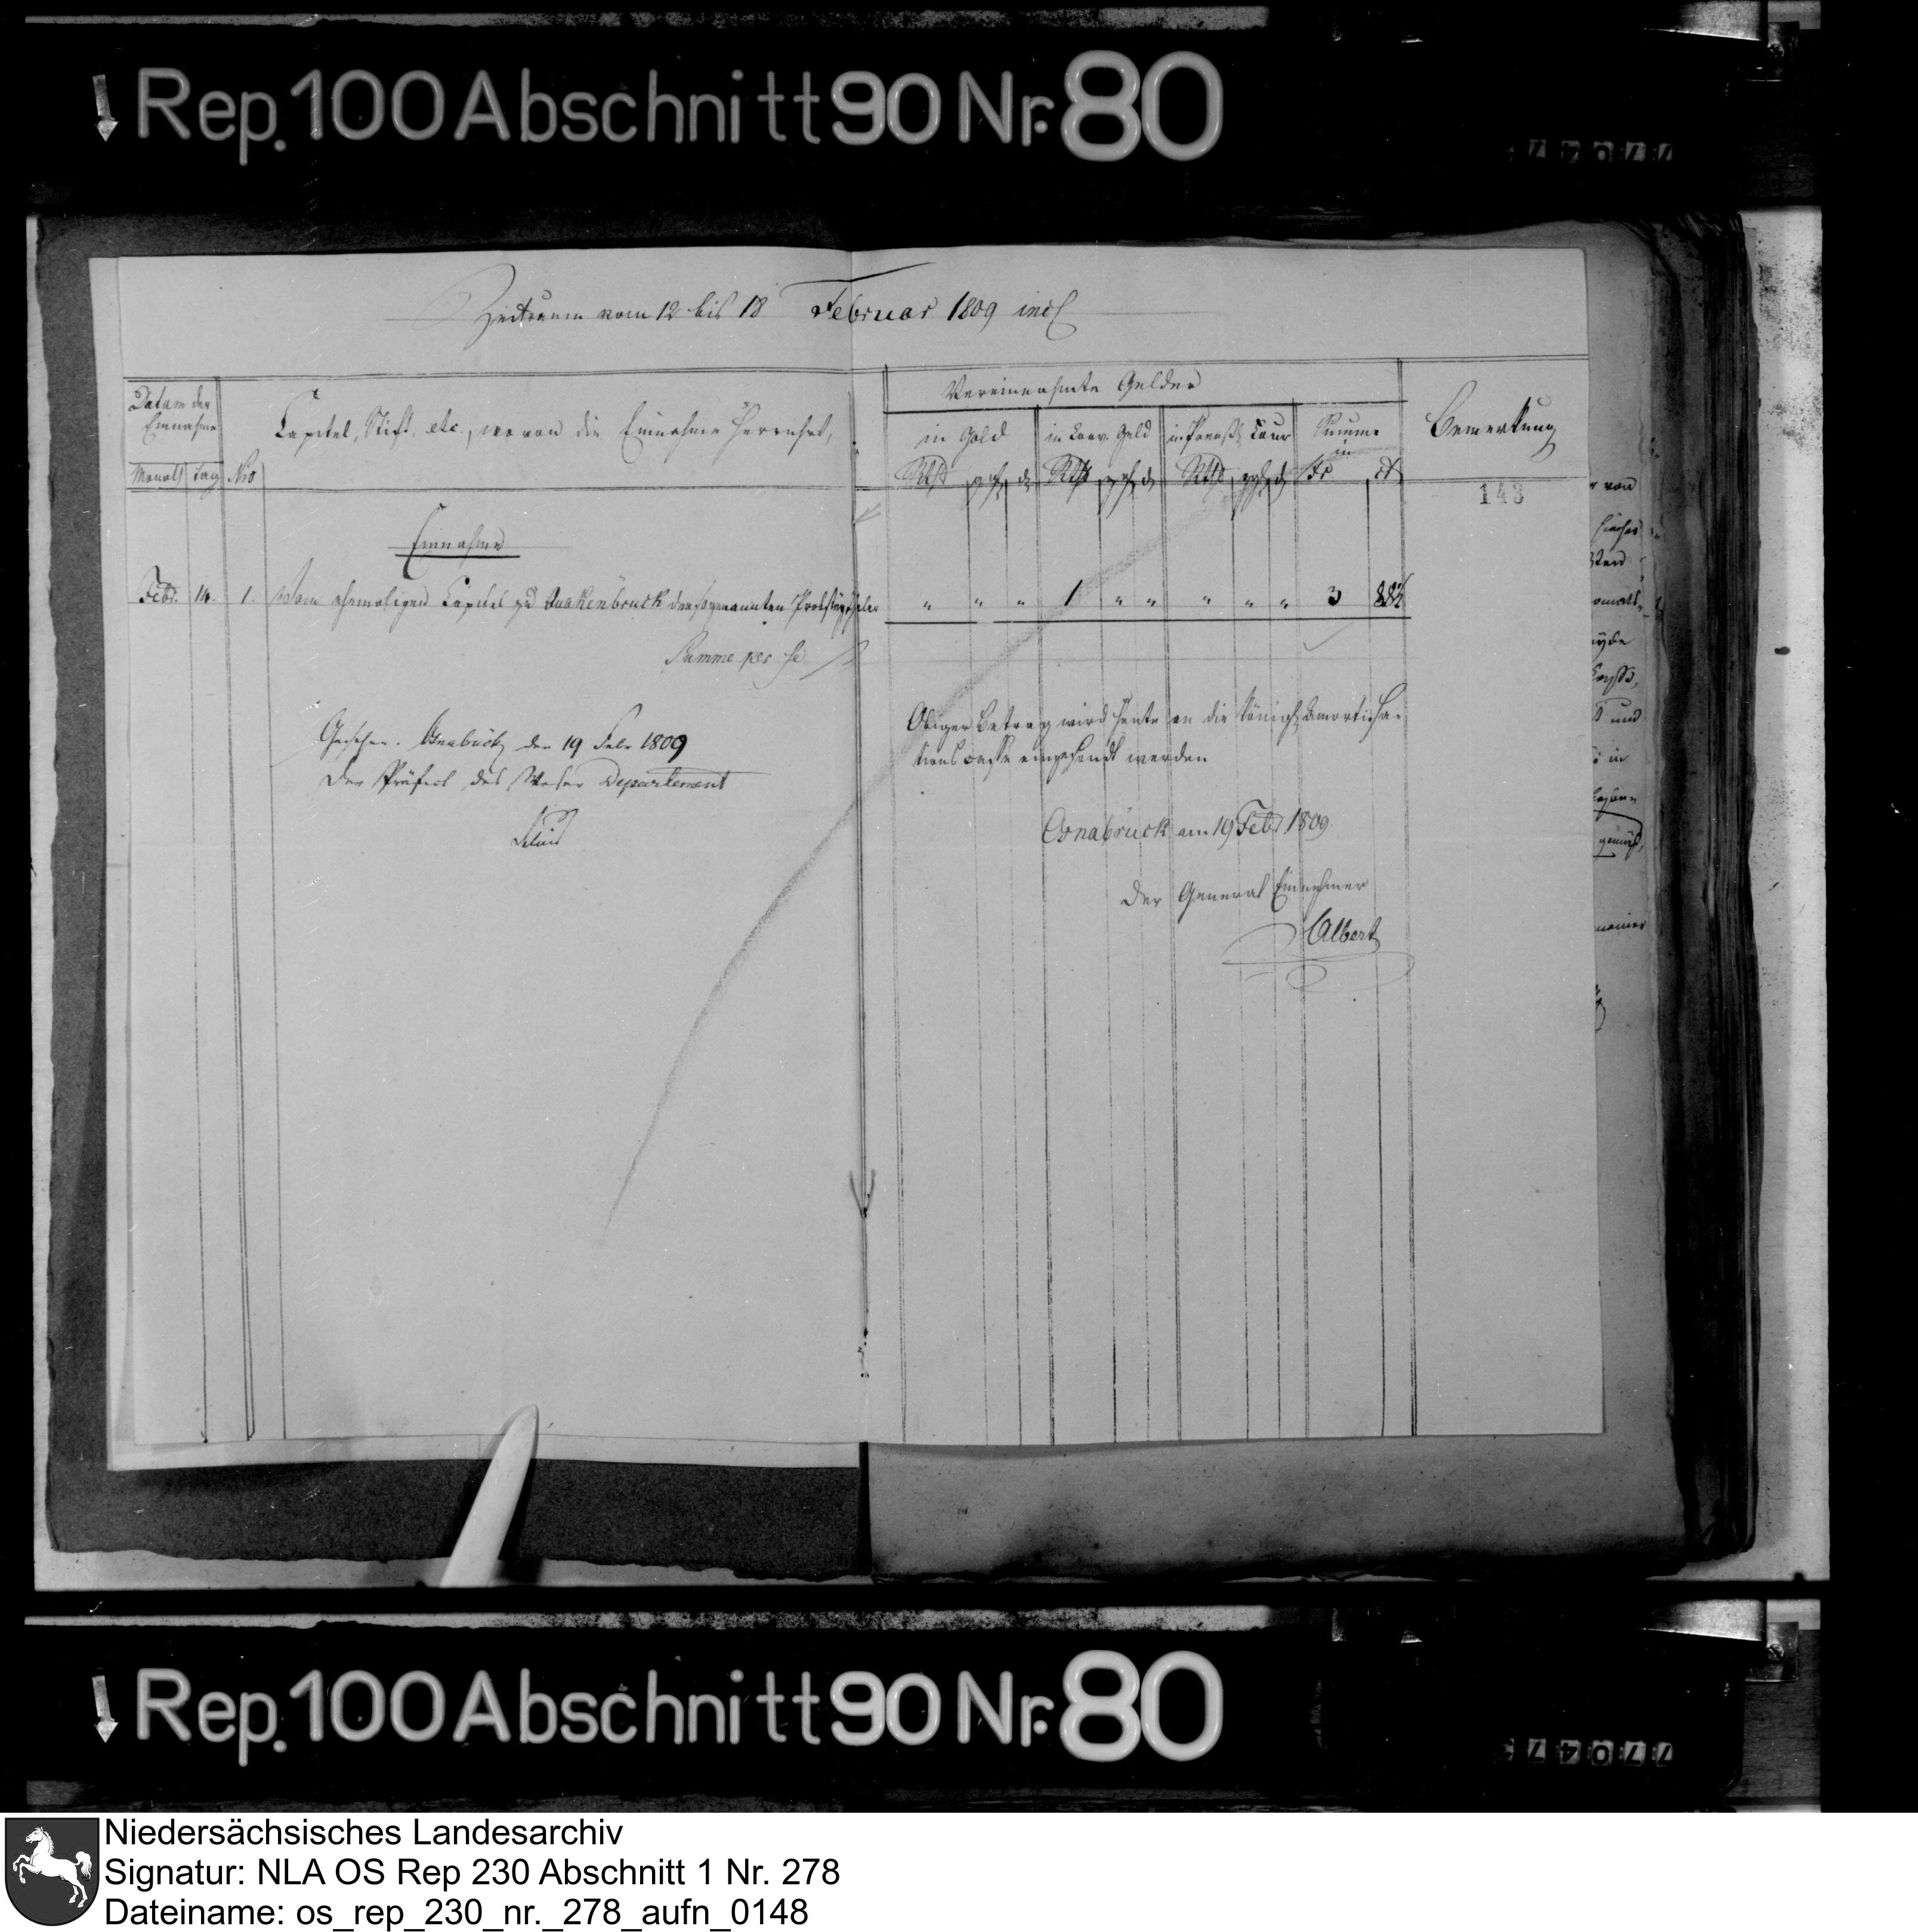 Rep. 100 Abschnitt 90 Nr. 80
Zeitraum vom 12 bis 18 Februar 1809 incl
Datum der Einnahme
Monat Tag Nro
Capitel, Stift, etc., wovon die Einnahme herrührt,
Vereinnahmte Gelder
in Gold
in Conv. Geld
in Preuß. Cour
Summe in
Rthlr ggr d
Rthlr ggr d
Rthlr ggr d
Fr. ct
Bemerkung
143
Einnahme
Febr. 14. 1. Vom ehemaligen Capitel zu Quakenbruck den sogenannten " " " 1 " " " " " 3 88½
Summe per se
Gesehen. Osnabrück den 19 Febr 1809
Der Präfect des Weser Departement
Obiger Betrag wird heute an die Königl. Amortisa-
tions Casse eingesandt werden
Osnabrück am 19 Febr 1809
Der General Einnehmer
Albert
Rep. 100 Abschnitt 90 Nr. 80
Niedersächsisches Landesarchiv
Signatur: NLA OS Rep 230 Abschnitt 1 Nr. 278
Dateiname: os_rep_230_nr._278_aufn_0148